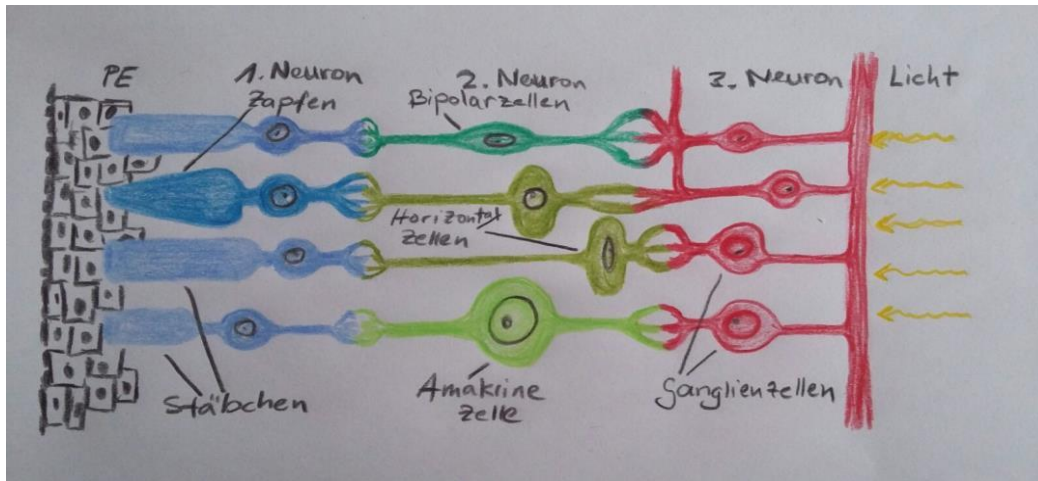 PE
1. Neuron
Zapfen
2. Neuron
Bipolarzellen
3. Neuron
Licht
Horizontal
zellen
Stäbchen
Amakrine
zelle
Ganglienzellen